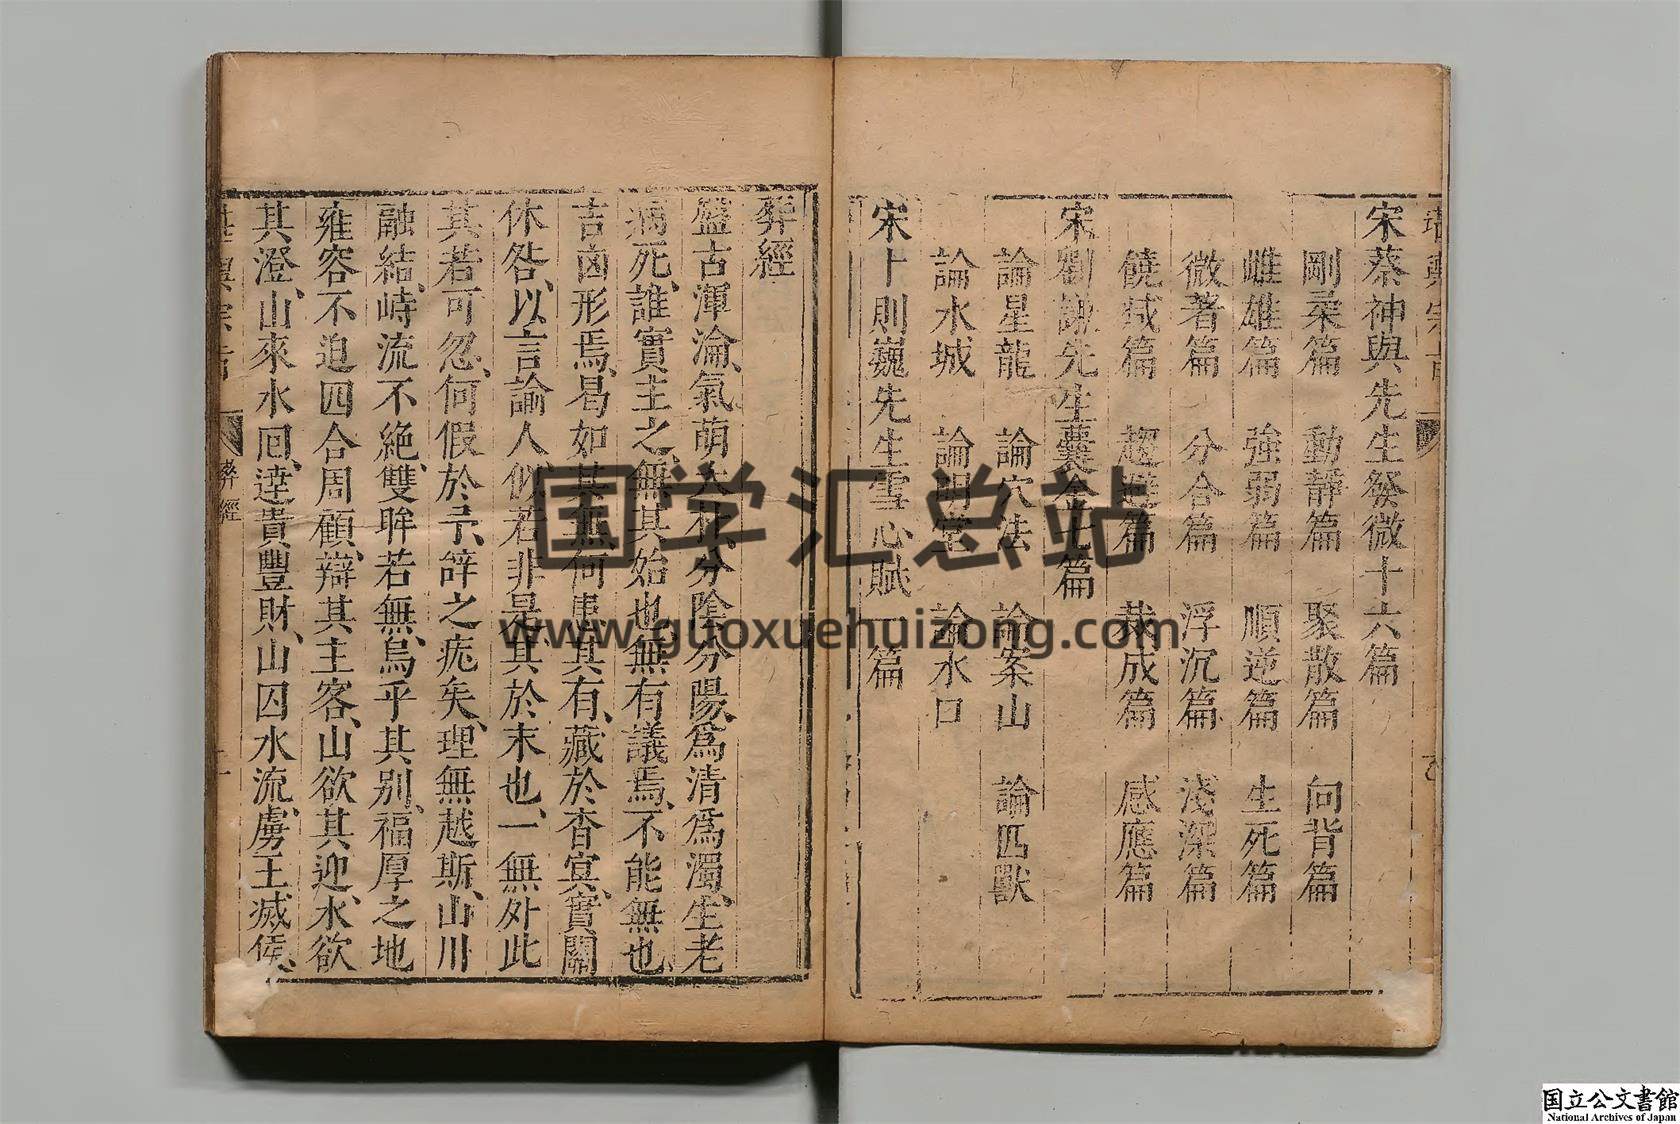 宋蔡神與先生發微十六篇
剛柔篇 動靜篇 聚散篇 向背篇
雌雄篇 強弱篇 順逆篇 生死篇
微著篇 分合篇 浮沉篇 淺深篇
饒減篇 趨避篇 裁成篇 感應篇
宋劉謙先生囊金七篇
論星龍 論穴法 論案山 論匹獸
論水城 論明堂 論水口
宋卜則巍先生雪心賦一篇
葬經
盤古渾淪氣萌大朴分陰分陽爲清爲濁生老
病死誰實主之無其始也無有議焉不能無也
吉凶形焉曷如其無何患其有藏於杳冥實關
休咎以言諭人似若非是其於末也一無外此
其若可忽何假於予辭之疣矣理無越斯山川
融結峙流不絶雙眸若無烏乎其别福厚之地
雍容不迫四合周顧辯其主客山欲其迎水欲
其澄山來水囘逹貴豐財山囚水流虜王滅侯
葬經
国学汇总站
www.guoxuehuizong.com
国立公文書館
National Archives of Japan